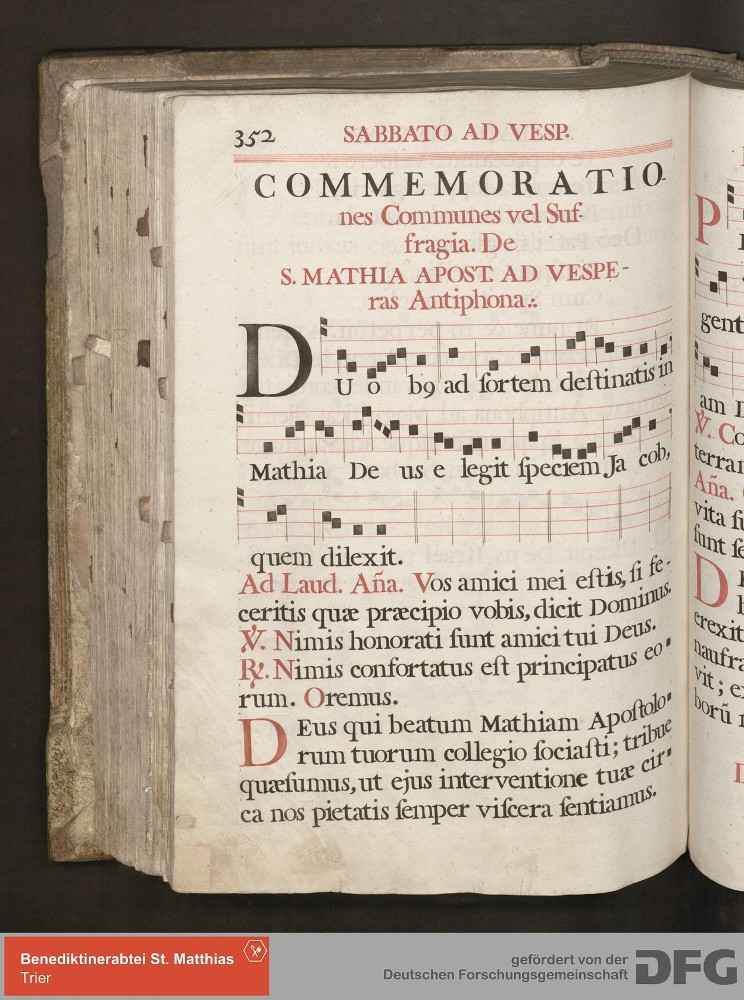 352 SABBATO AD VESP.
COMMEMORATIO-
nes Communes vel Suf
fragia. De
S. MATHIA APOST. AD VESPE-
ras Antiphona.:.
DU o b9 ad ſortem deſtinatis in
Mathia De us e legit ſpeciem Ja cob,
quem dilexit.
Ad Laud. Aña. Vos amici mei eſtis, ſi fe-
ceritis quæ præcipio vobis, dicit Dominus.
℣. Nimis honorati ſunt amici tui Deus.
℟. Nimis confortatus eſt principatus eo-
rum. Oremus.
DEus qui beatum Mathiam Apoſtolo-
rum tuorum collegio ſociaſti; tribue
quæſumus, ut ejus interventione tuæ cir-
ca nos pietatis ſemper viſcera ſentiamus.
P
gent
am
℣. Co
terra
Aña.
vita ſu
ſunt ſe
D
erexit
naufra
vit; e
borū
Benediktinerabtei St. Matthias
Trier
gefördert von der
Deutschen Forschungsgemeinschaft
DFG